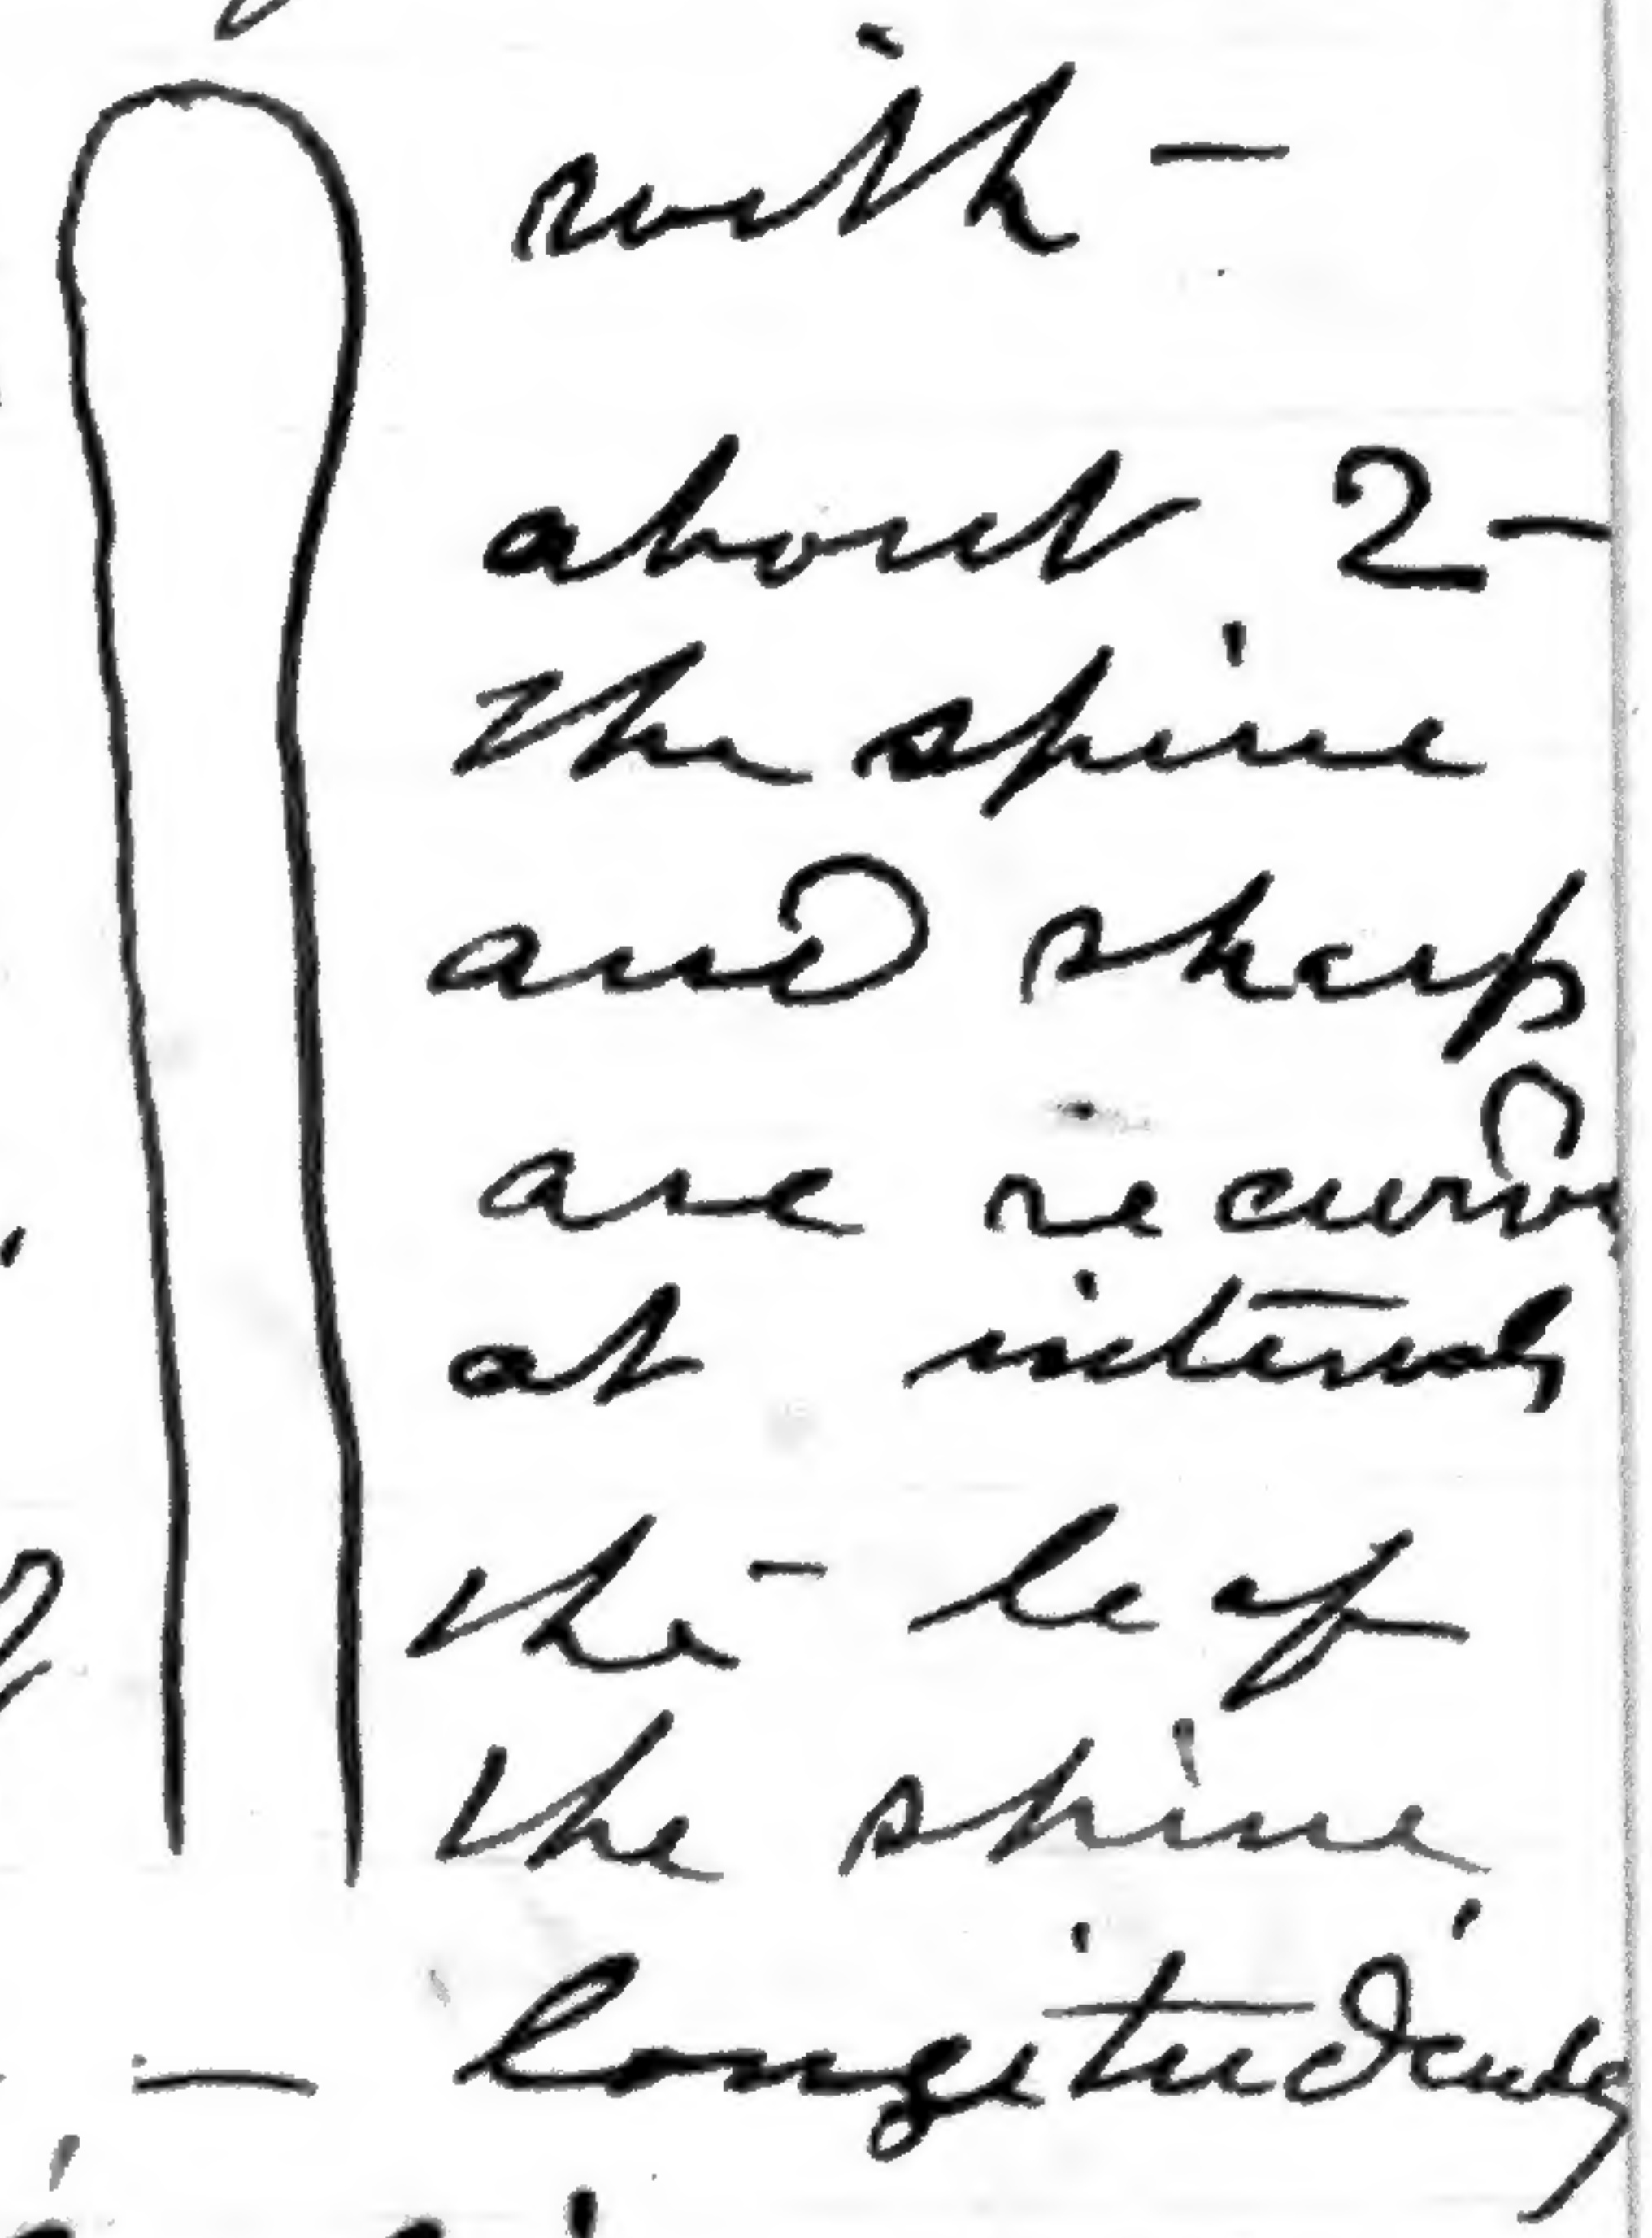 with —
about 2 —
the spine
and sharp
are recurv
at intervals
the — leaf
the spine
— longitudinaly